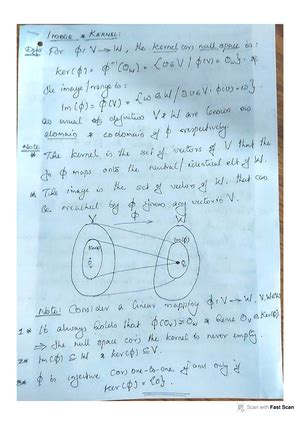 IMAGE & KERNEL:
Defn: For ϕ: V → W, the kernel (or) null space is:
ker(ϕ) = ϕ⁻¹(0w) = {v ∈ V / ϕ(v) = 0w} &
the image/range is:
Im(ϕ) = ϕ(V) = {w ∈ W / ∃ v ∈ V, ϕ(v) = w}.
As usual definition V & W are known as
domain & codomain of ϕ respectively.
Note
* The kernel is the set of vectors of V that the
ϕ maps onto the neutral/identical elt of W.
* The image is the set of vectors of W, that can
be reached by ϕ from any vector in V.
V ϕ W
Ker(ϕ) Im(ϕ)
0v 0w
Note: Consider a linear mapping ϕ: V → W, V, W
1* It always holds that ϕ(0v) = 0w & hence 0v ∈ Ker(ϕ)
⇒ The null space (or) the kernel is never empty.
2* Im(ϕ) ⊆ W & Ker(ϕ) ⊆ V.
3* ϕ is injective (or) one-to-one if and only if
ker(ϕ) = {0}.
Scan with Fast Scan